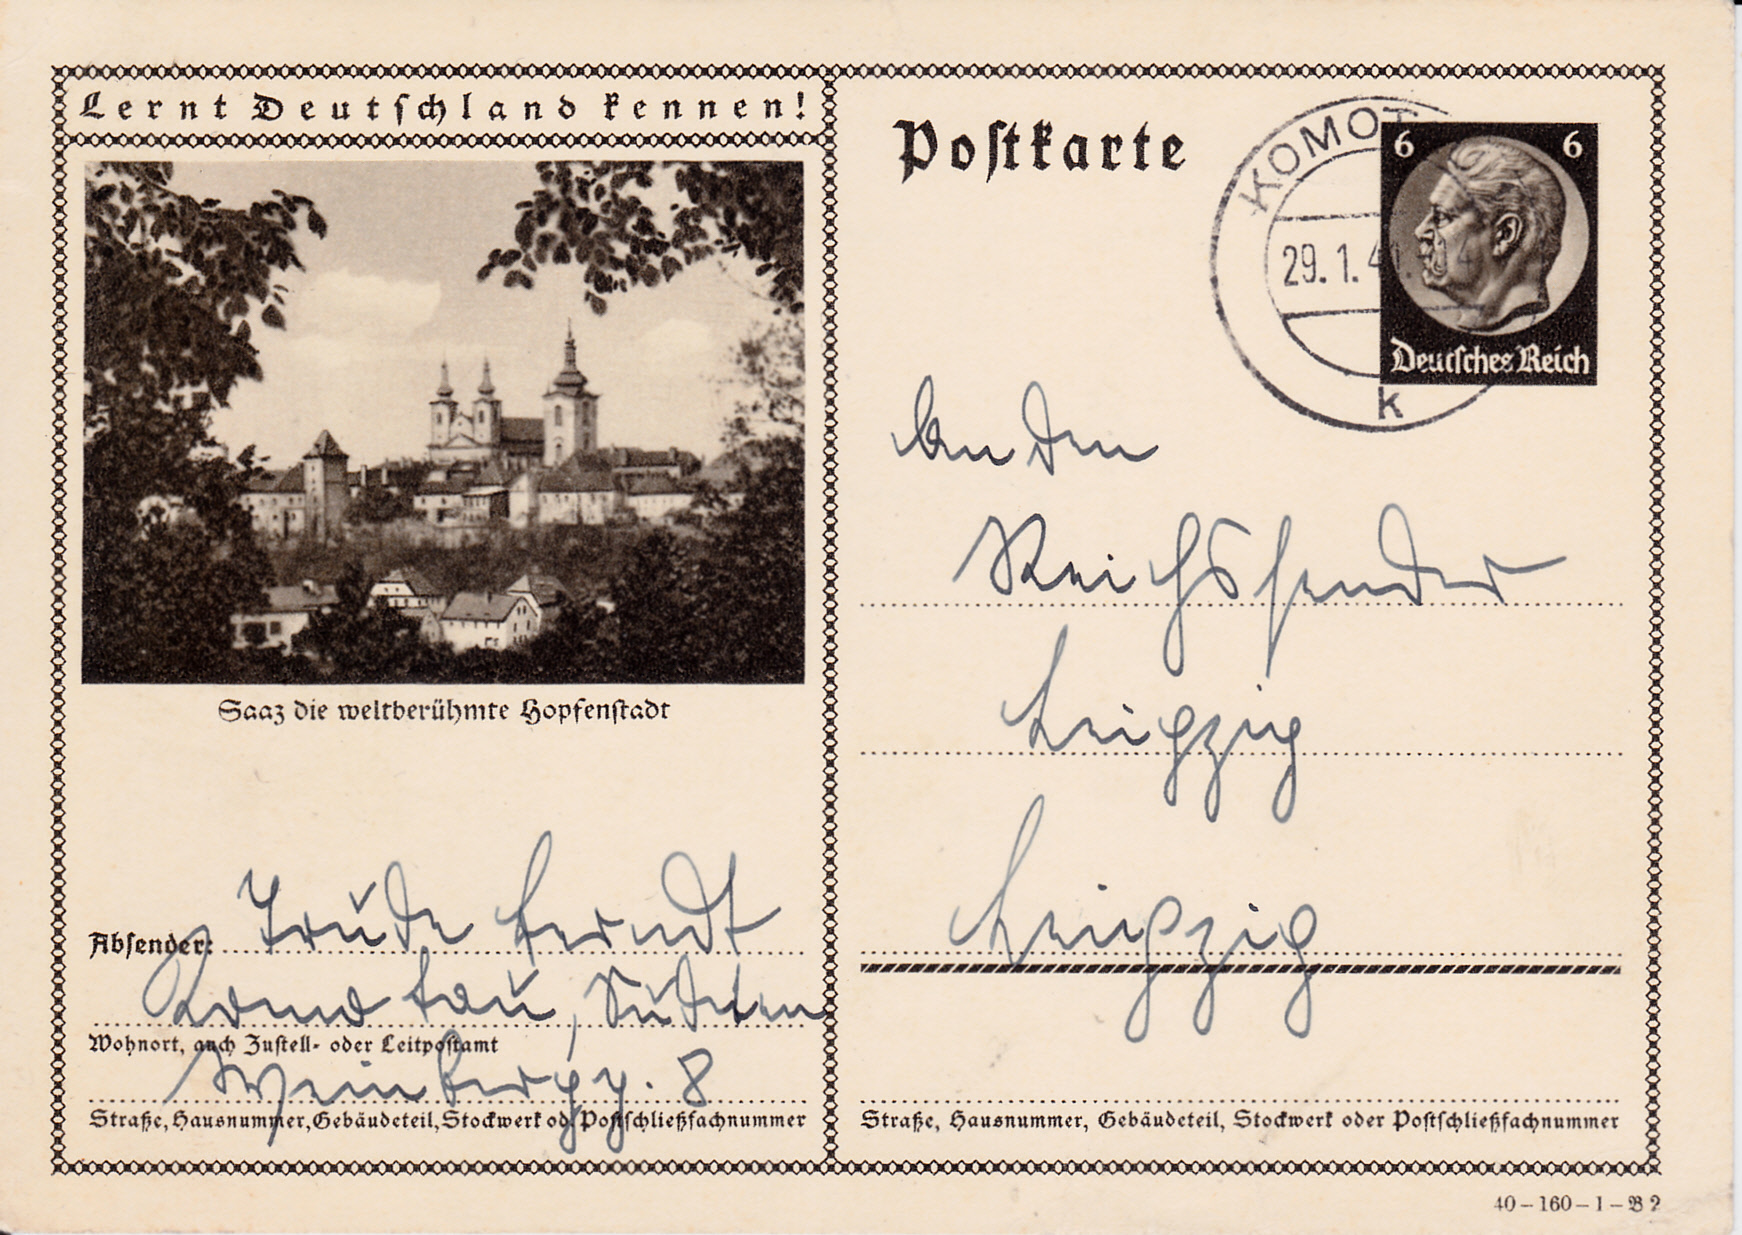 Lernt Deutschland kennen!
Saaz die weltberühmte Hopfenstadt
Absender: Trude Berndt
Komotau, Sudeten
Wohnort, auch Zustell- oder Leitpostamt
Weinbergg. 8
Straße, Hausnummer, Gebäudeteil, Stockwerk od. Postschließfachnummer
Postkarte
KOMOT
29.1.41
k
6 6
Deutsches Reich
An den
Reichssender
Leipzig
Leipzig
Straße, Hausnummer, Gebäudeteil, Stockwerk oder Postschließfachnummer
40-160-1-B2